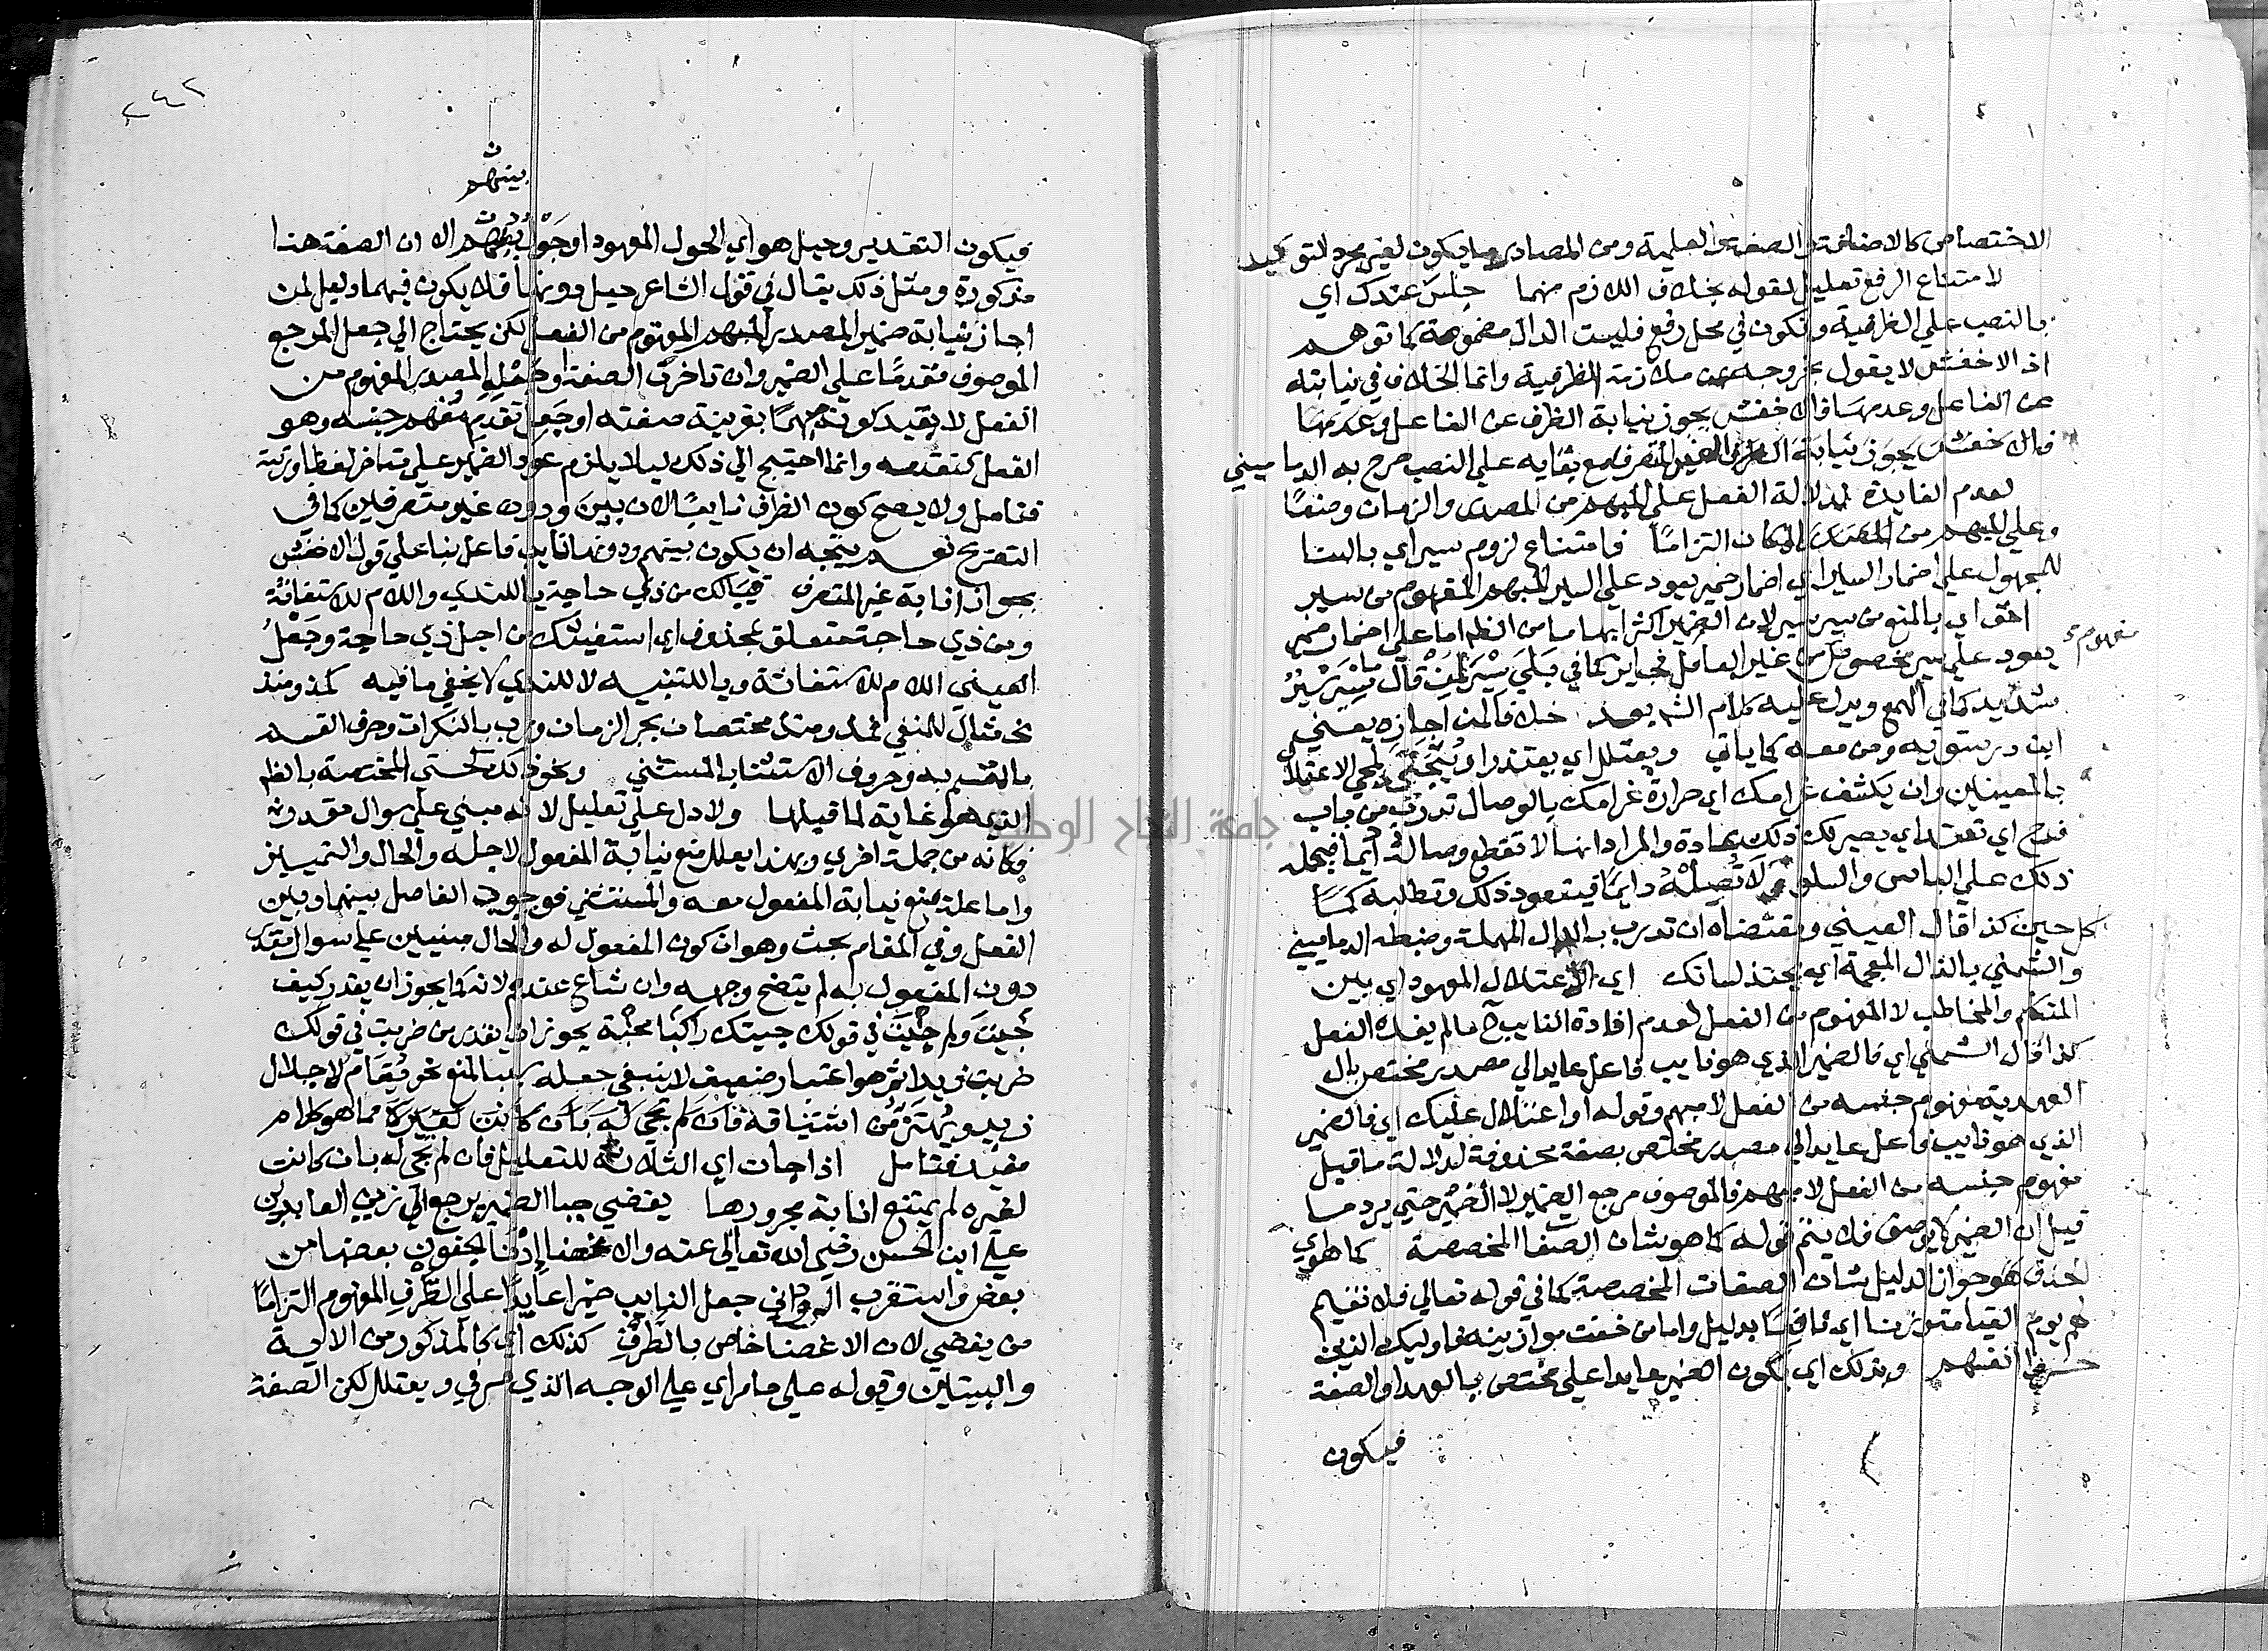 الاختصاص كالاضافة والصفة والعلمية ومن المصادر ما يكون لغير مجرد التوكيد
لامتناع الرفع تعليل لقوله بخلاف اللازم منهما جلس عندك اي
بالنصب علي الظرفية وتكون في محل رفع فليست الدال مضمومة كما توهم
اذ الاخفش لا يقول بخروجه عن ملازمة الظرفية وانما الخلاف في نيابته
عن الفاعل وعدمها فالاخفش يجوز نيابة الظرف عن الفاعل وعدمها
فالاخفش يجوز نيابة الظرف الغير المتصرف مع بقايه علي النصب صرح به الدماميني
لعدم الفايدة لدلالة الفعل علي المبهم من المصدر والزمان وضعًا
وعلي المبهم من المكان التزامًا فامتناع لزوم سير اي بالبنا
للمجهول علي اضمار السير اي اضمار ضمير يعود علي السير المبهم المفهوم من سير
احق اي بالمنع من سير سير لان الضمير اكثر ابهاما من الظاهر اما علي اضمار ضمير
مفهوم
يعود علي سير مخصوص من غير العامل فجايز كما في بلي سير لمن قال ما سير سير
شديد كما في الهمع ويدل عليه كلام الش بعد خلافا لمن اجازه يعني
ابن درستويه ومن معه كما ياتي ويعتلل اي يعتذر او يتجني
بالمعينين وان يكشف غرامك اي حرارة غرامك بالوصال تدرب من باب
فرح اي تعتد اي يصير لك ذلك عادة والمراد انها لا تقطع وصاله دايما فيحمله
ذلك علي الياس والسلو ولا تصله دايمًا فيتعود ذلك وتطلبه
كل حين كذا قال العيني ومقتضاه ان تدرب بالدال المهملة وضبطه الدماميني
والشمني بالذال المعجمة اي يحتد لسانك اي الاعتلال المعهود اي بين
المتكلم والمخاطب لا المفهوم من الفعل لعدم افادة النايب ح ما لم يفده الفعل
كذا قال الشمني اي فالضمير الذي هو نايب فاعل عايد الي مصدر مختص بال
العهدية مفهوم جنسه من الفعل لا مبهم وقوله او اعتلال عليك اي فالضمير
الذي هو نايب فاعل عايد الي مصدر مختص بصفة محذوفة لدلالة ما قبل
مفهوم جنسه من الفعل لا مبهم فالموصوف مرجع الضمير لا الضمير حتي يرد ما
قيل ان الضمير لا يوصف فلا يتم قوله كما هو شان الصفات المخصصة كما هو اي
الحذف هو جواز الدليل شان الصفات المخصصة كما في قوله تعالي فلا نقيم
لهم يوم القيامة وزنا اي نافعًا بدليل واما من خفت موازينه فاوليك الذين
خسروا انفسهم وبذلك اي بكون الضمير عايدا علي مختص بالعهد او الصفة
فيكون
بينهم
فيكون التقدير وحيل هو اي الحول المعهود او حول بينهم الا ان الصفة هنا
مذكورة ومثل ذلك يقال في قول الشاعر حيل دونها فلا يكون فيهما دليل لمن
اجاز نيابة ضمير المصدر المبهم المفهوم من الفعل لكن يحتاج الي جعل المرجع
الموصوف متقدمًا علي الضمير وان تاخرت الصفة او جعل المصدر المفهوم من
الفعل لا بقيد كونه مبهمًا بقرينة صفته او جعل تقدم مفهم جنسه وهو
الفعل كتقدمه وانما احتيج الي ذلك ليلا يلزم عود الضمير علي متاخر لفظا ورتبة
فتامل ولا يصح كون الظرف نايبًا لان بين ودون غير متصرفين كما في
التصريح نعم يتجه ان يكون بينهم ودونها نايب فاعل بنا علي قول الاخفش
بجواز انابة غير المتصرف فيا لك من ذي حاجة يا للندي واللام للاستغاثة
ومن ذي حاجة متعلق بمحذوف اي استغيثك من اجل ذي حاجة وجعل
العيني اللام للاستغاثة ويا للتنبيه لا للندي لا يخفي ما فيه كمذ ومنذ
نحو مثال للمنفي فمذ ومنذ مختصان بجر الزمان ورب بالنكرات وحرف القسم
بالمقسم به وحروف الاستثنا بالمستثني ونحو ذلك كحتي المختصة بالظاهر
الذي هو غاية لما قبلها ولا دل علي تعليل لانه مبني علي سوال مقدر
فكانه من جملة اخري وبهذا يعلل منع نيابة المفعول لاجله والحال والتمييز
واما علة منع نيابة المفعول معه والمستثني فوجوب الفاصل بينهما وبين
الفعل وفي المقام بحث وهو ان كون المفعول له والحال مبنيين علي سوال مقدر
دون المفعول به لم يتضح وجهه وان شاع عندهم لانه كما يجوز ان يقدر كيف
جيت ولم جيت في قولك جيتك راكبًا محبة يجوز ان يقدر من ضربت في قولك
ضربت زيدا ثم هو اعتبار ضعيف لا ينبغي جعله سببا لمنع نحو يقام لاجلال
زيد ويهتز من اشتياقه فان لم يجي له بان كانت لغيره مما هو كلام
مفيد فتامل اذا جات اي الثلاثة للتعليل فان لم تجي له بان كانت
لغيره لم يمتنع انابة مجرورها يغضي حيا الضمير يرجع الي زين العابدين
علي ابن الحسن رضي الله تعالي عنه والاغضا ادنا الجفون بعضها من
بعض واستقرب الروداني جعل النايب ضميرا عايدا علي الطرف المفهوم التزامًا
من يغضي لان الاغضا خاص بالطرف كذلك اي كالمذكور من الاية
والبيتين وقوله علي ما مر اي علي الوجه الذي مر في ويعتلل لكن الصفة
جامعة النجاح الوطنية